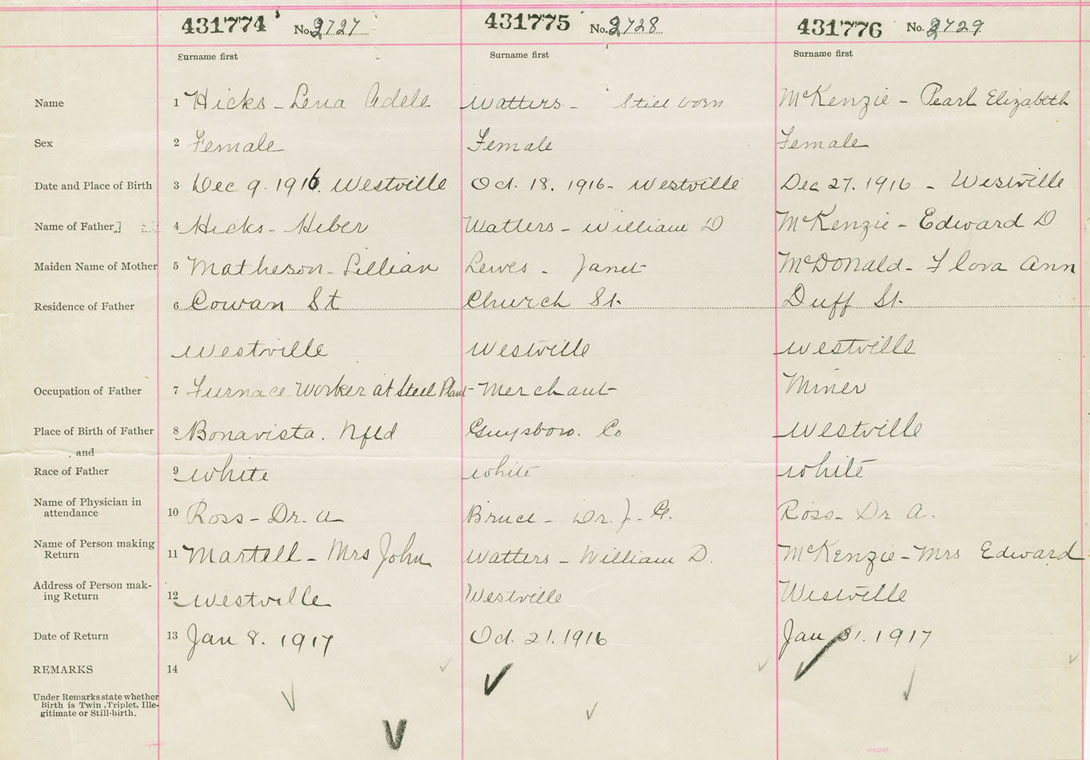 431774 No. 2727 431775 No. 2728 431776 No. 2729
Surname first Surname first Surname first
Name 1 Hicks - Lena Adele Watters - Still born McKenzie - Pearl Elizabeth
Sex 2 Female Female Female
Date and Place of Birth 3 Dec 9. 1916. Westville Oct. 18. 1916 - Westville Dec 27. 1916 - Westville
Name of Father 4 Hicks - Heber Watters - William D McKenzie - Edward D
Maiden Name of Mother 5 Matheson - Lillian Lewes - Janet McDonald - Flora Ann
Residence of Father 6 Cowan St Church St. Duff St.
Westville Westville Westville
Occupation of Father 7 Furnace Worker at Steel Plant Merchant Miner
Place of Birth of Father 8 Bonavista. Nfld Guysboro. Co Westville
and
Race of Father 9 white white white
Name of Physician in
attendance 10 Ross - Dr. A Bruce - Dr. J. G. Ross - Dr A.
Name of Person making
Return 11 Martell - Mrs John Watters - William D. McKenzie - Mrs Edward
Address of Person mak-
ing Return 12 Westville Westville Westville
Date of Return 13 Jan 8. 1917 Oct. 21. 1916 Jan 31. 1917
REMARKS 14
Under Remarks state whether
Birth is Twin, Triplet, Ille-
gitimate or Still-birth.